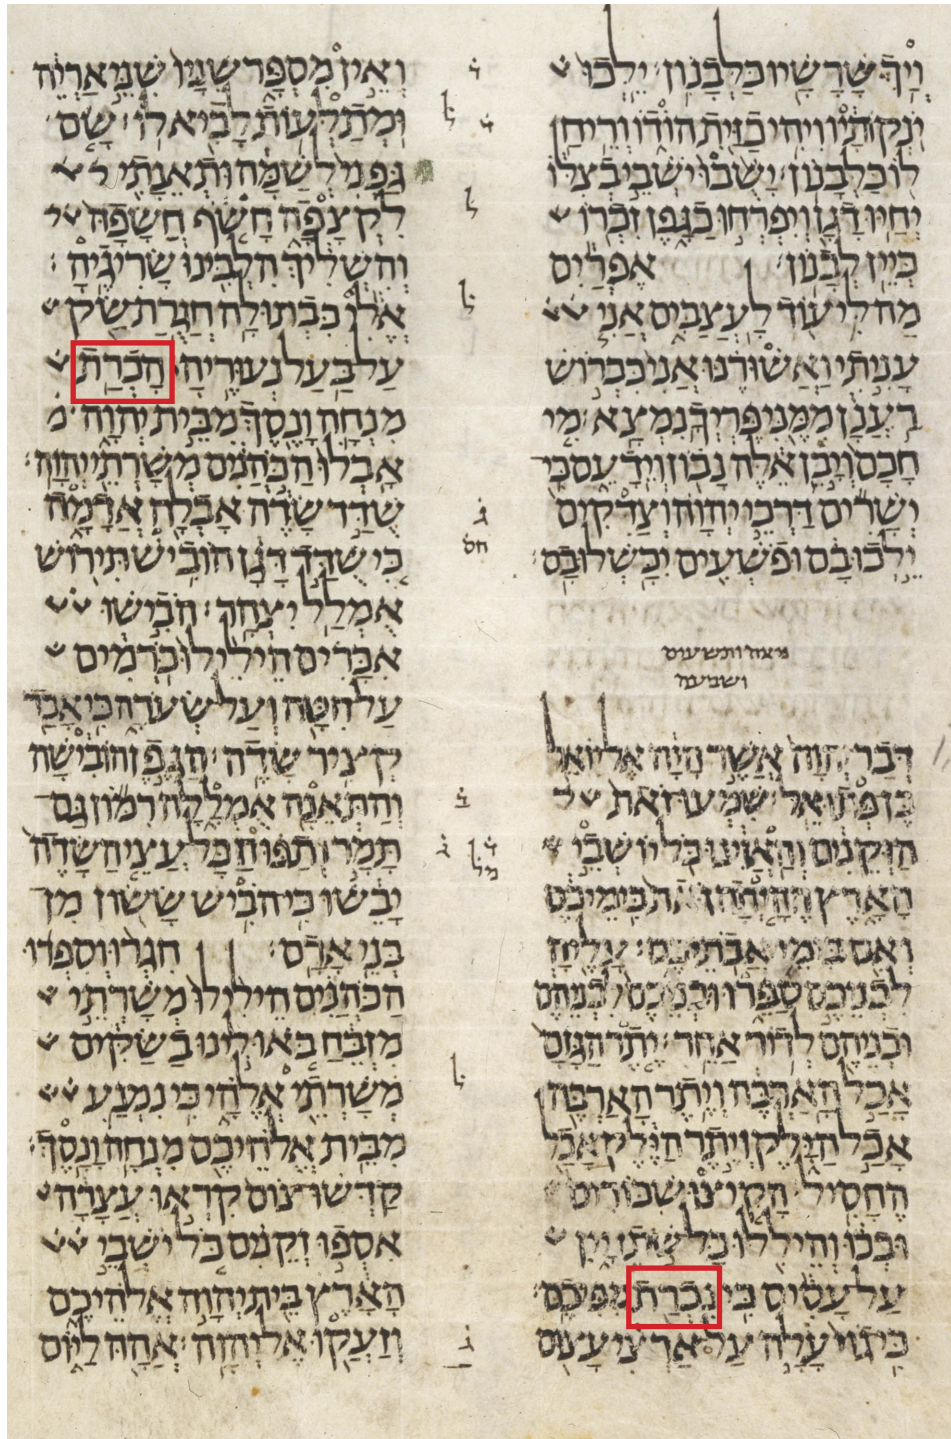 ויך שרשיו כלבנון׃ ילכו
ינקותיו ויהי כזית הודו וריח
לו כלבנון׃ ישבו ישבי בצלו
יחיו דגן ויפרחו כגפן זכרו
כיין לבנון׃ אפרים
מה לי עוד לעצבים אני
עניתי ואשורנו אני כברוש
רענן ממני פריך נמצא׃ מי
חכם ויבן אלה נבון וידעם כי
ישרים דרכי יהוה וצדקים
ילכו בם ופשעים יכשלו בם׃
מאה ותשעים
ושבעה
דבר יהוה אשר היה אל יואל
בן פתואל׃ שמעו זאת
הזקנים והאזינו כל יושבי
הארץ ההיתה זאת בימיכם
ואם בימי אבתיכם׃ עליה
לבניכם ספרו ובניכם לבניהם
ובניהם לדור אחר׃ יתר הגזם
אכל הארבה ויתר הארבה
אכל הילק ויתר הילק אכל
החסיל׃ הקיצו שכורים
ובכו והיללו כל שתי יין
על עסיס כי נכרת מפיכם׃
כי גוי עלה על ארצי עצום
ואין מספר שניו שני אריה
ומתלעות לביא לו׃ שם
גפני לשמה ותאנתי
לקצפה חשף חשפה
והשליך הלבינו שריגיה׃
אלי כבתולה חגרת שק
על בעל נעוריה׃ הכרת
מנחה ונסך מבית יהוה
אבלו הכהנים משרתי יהוה׃
שדד שדה אבלה אדמה
כי שדד דגן הוביש תירוש
אמלל יצהר׃ הבישו
אכרים הילילו כרמים
על חטה ועל שערה כי אבד
קציר שדה׃ הגפן הובישה
והתאנה אמללה רמון גם
תמר ותפוח כל עצי השדה
יבשו כי הביש ששון מן
בני אדם׃ חגרו וספדו
הכהנים הילילו משרתי
מזבח באו לינו בשקים
משרתי אלהי כי נמנע
מבית אלהיכם מנחה ונסך׃
קדשו צום קראו עצרה
אספו זקנים כל ישבי
הארץ בית יהוה אלהיכם
וזעקו אל יהוה׃ אהה ליום